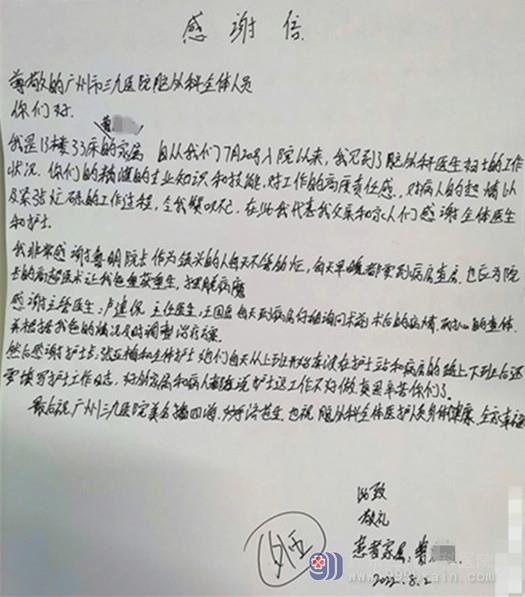 感谢信
尊敬的广州市三九医院脑外科全体人员
你们好.
曾
我是13楼33床的家属 自从我们7月20号入院以来,我见到了脑外科医生护士的工作
状况.你们的精湛的专业知识和技能,对工作的高度责任感,对病人的热情以
及紧张忙碌的工作过程,令我叹不已.在此我代表我父亲和家人们感谢全体医生
和护士.
我非常感谢鲁明院长作为领头的人每天不管多忙,每天早晚都要到病房查房.也正为院
长的高超医术让我爸重获重生,摆脱病魔
感谢主管医生,卢建侃 主任医生,王国 每天到病房仔细询问术前术后的病情,耐心的查体.
并根据我爸的情况及时调整治疗方案.
然后感谢护士长,张亚梅和全体护士 她们每天从上班开始奔波在护士站和病房的路上 下班后还
要填写护士工作日志,好多家属和病人都在说护士这工作不好做真是辛苦你们了.
最后祝广州三九医院美名播四海,济苍生 也祝脑外科全体医护人员身体健康,全家幸福
此致
敬礼
患者家属:曾
2022.8.2
99brain.com